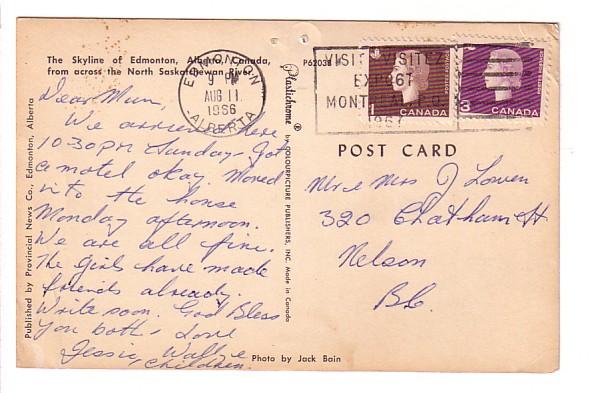 The Skyline of Edmonton, Alberta, Canada,
from across the North Saskatchewan River.
P62038
EDMONTON
9 PM
AUG 11
1966
ALBERTA
VISIT VISITEZ
EXPO67
MONTREAL P.Q.
1967
1
CANADA
3
CANADA
Dear Mum,
We arrived here
10.30 PM Sunday. Got
a motel okay. Moved
into the house
Monday afternoon.
We are all fine.
The girls have made
friends already.
Write soon. God Bless
you both. Love
Jessie, Wall &
Children.
Published by Provincial News Co., Edmonton, Alberta
Plastichrome ® by COLOURPICTURE PUBLISHERS, INC. Made in Canada
POST CARD
Mr & Mrs J Lowen
320 Chatham St
Nelson
B.C.
Photo by Jack Bain